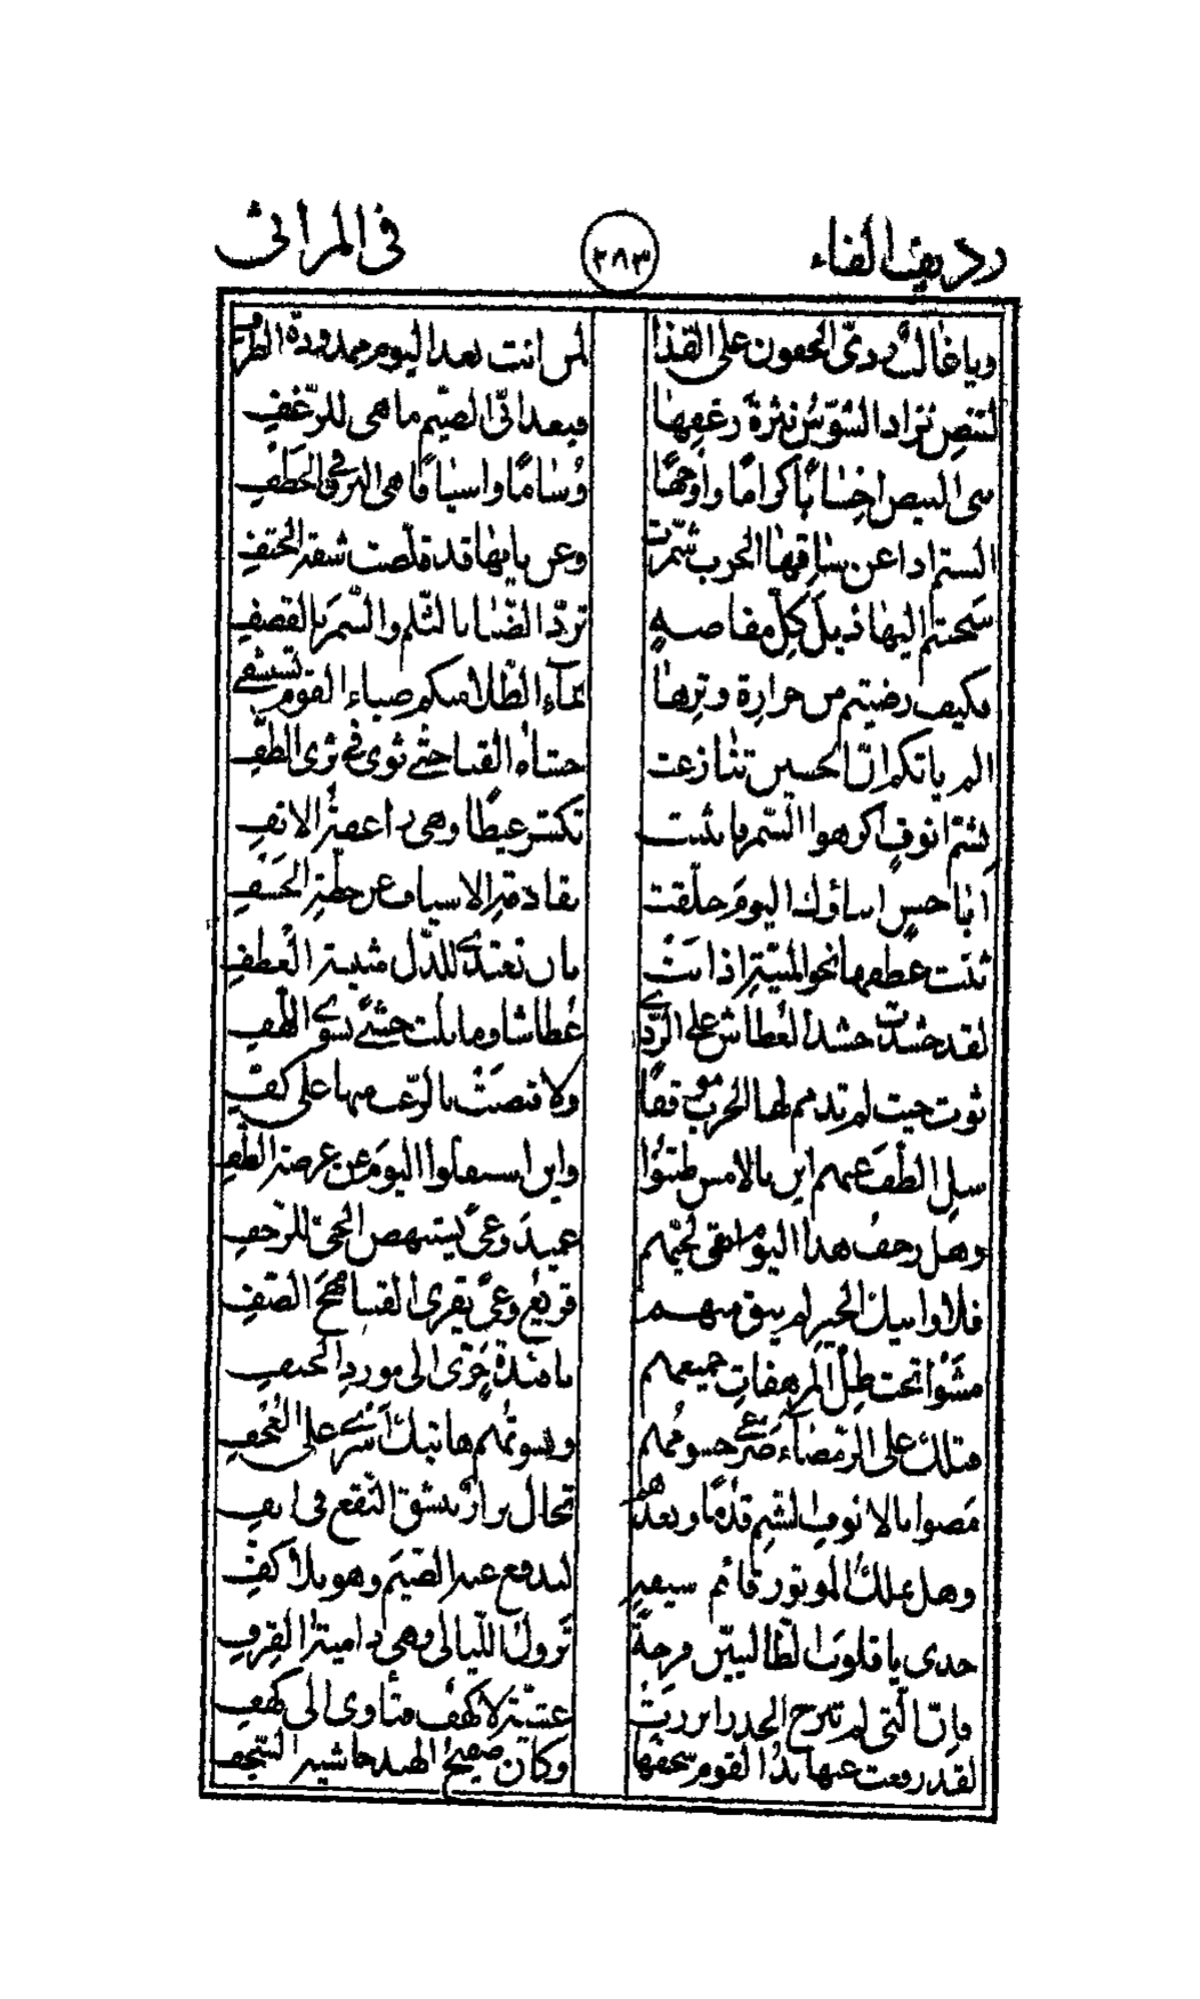 رديف الفاء ٢٨٣ في المراثي
ويا غالب ردي الجفون على القذا لمن انت بعد اليوم ممدودة الطرف
لتنض نزار الشوس نثرة زغفها فبعد ابي الضيم ما هي للزغف
بني البيض احسابًا كرامًا واوجهًا وسامًا واسيافًا هي البرق في الخطف
الستم اذا عن ساقها الحرب شمرت وعن نابها قد قلصت شفة الحتف
سحبتم اليها ذيل كل مفاضة تردّ الظبا بالثلم والسمر بالقصف
فكيف رضيتم من حرارة وترها بماء الطلا منكم ظباء القوم تستشفي
الم ياتكم انّ الحسين تنازعت حشاه القنا حتى ثوى في ثرى الطف
بشمّ انوف اكرهوا السمر فانثنت تكسر غيظًا وهي راعفة الانف
ابا حسن ابناؤك اليوم حلقت بقادمة الاسياف عن خطة الخسف
ثنت عطفها نحو المنية اذ ابت بان تغتدي للذل مثنية العطف
لقد حشدت حشد العطاش على الردى عطاشا وما بلت حشى بسوى اللهف
ثوت حيث لم تذمم لها الحرب موقفًا ولا قبضت بالرعب منها على كف
سل الطف عنهم اين بالامس طنبوا واين استقلوا اليوم عن عرصة الطف
وهل زحف هذا اليوم ابقى لحيهم عميد وغى يستنهض الحي للزحف
فلا وابيك الخير لم يبق منهم قريع وغى يقري القنا مهج الصف
مشوا تحت ظل المرهفات جميعهم بافئدة حرّى الى مورد الحتف
فتلك على الرمضاء صرعى جسومهم ونسوتهم هاتيك اسرى على العجف
مضوا بالانوف الشم قدمًا وبعدهم تخال نزارا تنشق النقع في انف
وهل يملك الموتور قائم سيفه ليدفع عنه الضيم وهو بلا كف
خذي يا قلوب الطالبيين قرحة تزول الليالي وهي دامية القرف
فان التي لم تبرح الخدر ابرزت عشية لا كهف فتأوي الى كهف
لقد رفعت عنها يد القوم سجفها وكان صفيح الهند حاشية السجف